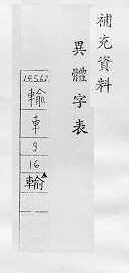 補充資料
異體字表
19.5.62.
輸
車
9
16
輸